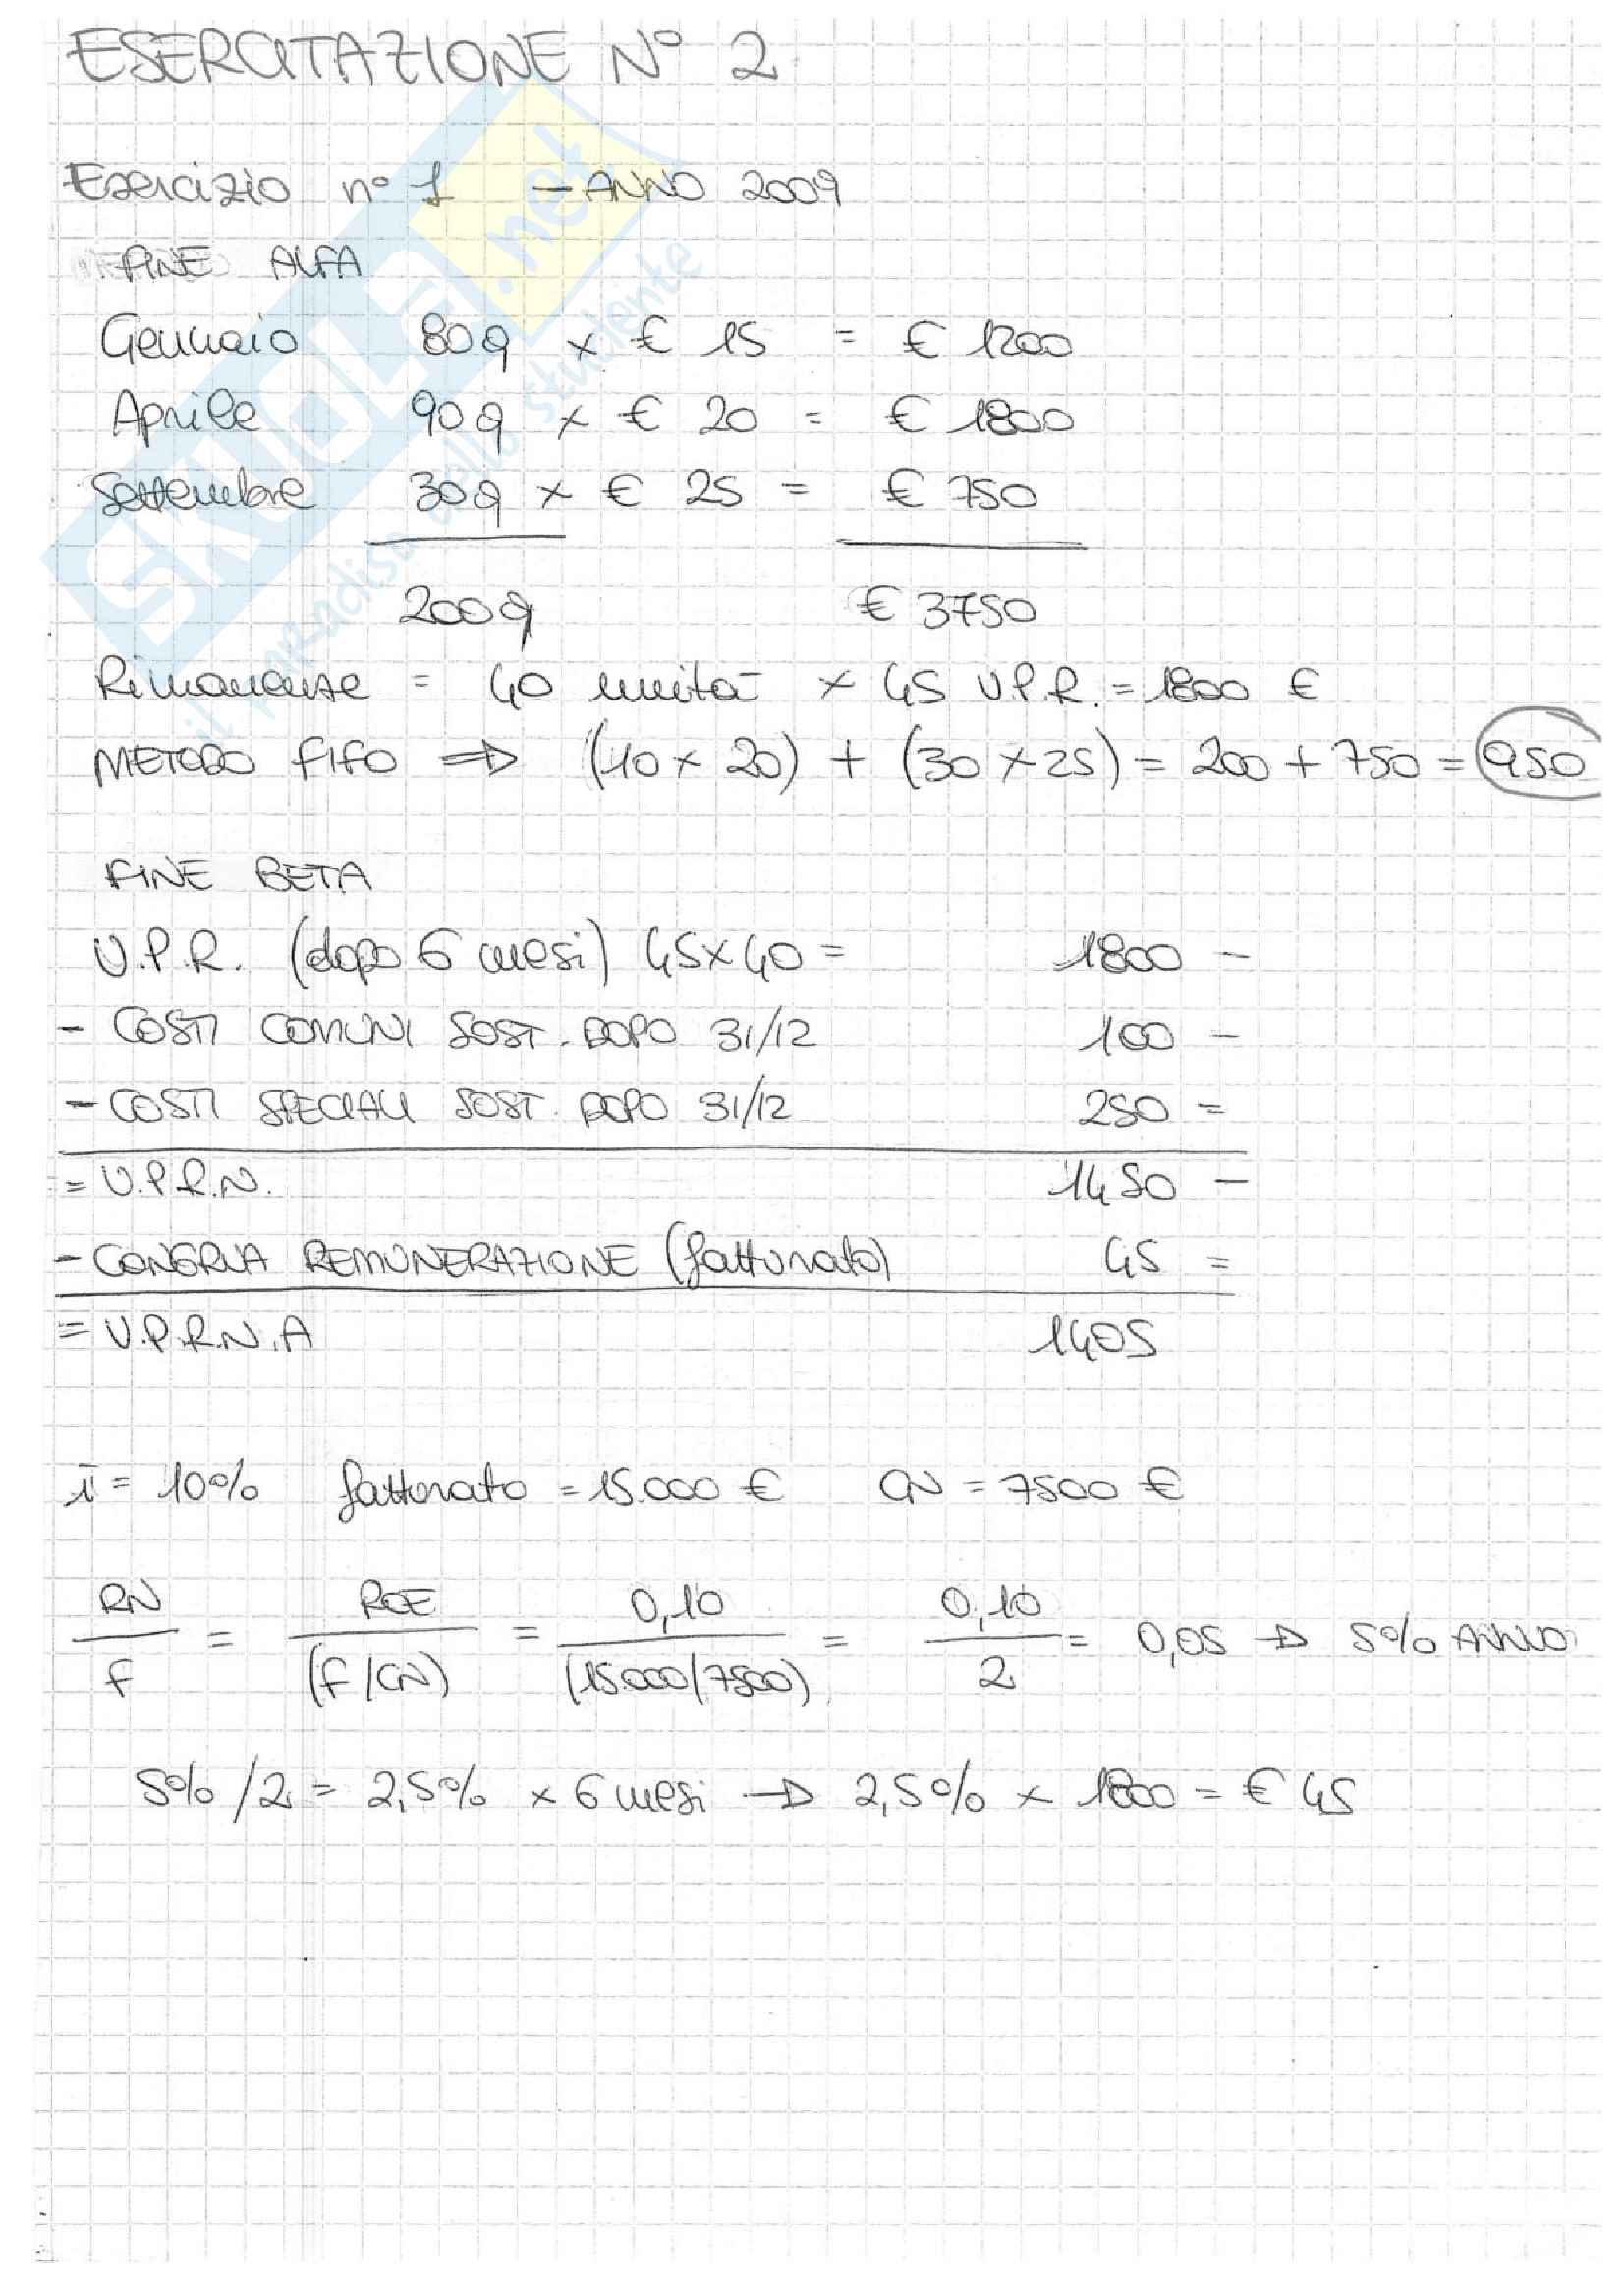 ESERCITAZIONE N° 2
Esercizio n° 1 - ANNO 2009
FINE ALFA
Gennaio 80q × € 15 = € 1200
Aprile 90q × € 20 = € 1800
Settembre 30q × € 25 = € 750
200q € 3750
Rimanenze = 40 unità × 45 V.P.R. = 1800 €
METODO FIFO => (10 × 20) + (30 × 25) = 200 + 750 = 950
FINE BETA
V.P.R. (dopo 6 mesi) 45×40 = 1800 -
- COSTI COMUNI SOST. DOPO 31/12 100 -
- COSTI SPECIALI SOST. DOPO 31/12 250 =
= V.P.R.N. 1450 -
- CONGRUA REMUNERAZIONE (fatturato) 45 =
= V.P.R.N.A 1405
i = 10% fatturato = 15.000 € CN = 7500 €
RN/F = ROE/(F/CN) = 0,10/(15.000/7500) = 0,10/2 = 0,05 → 5% ANNUO
5% /2 = 2,5% × 6 mesi → 2,5% × 1800 = € 45
SKUOLA.net
il paradiso dello studente